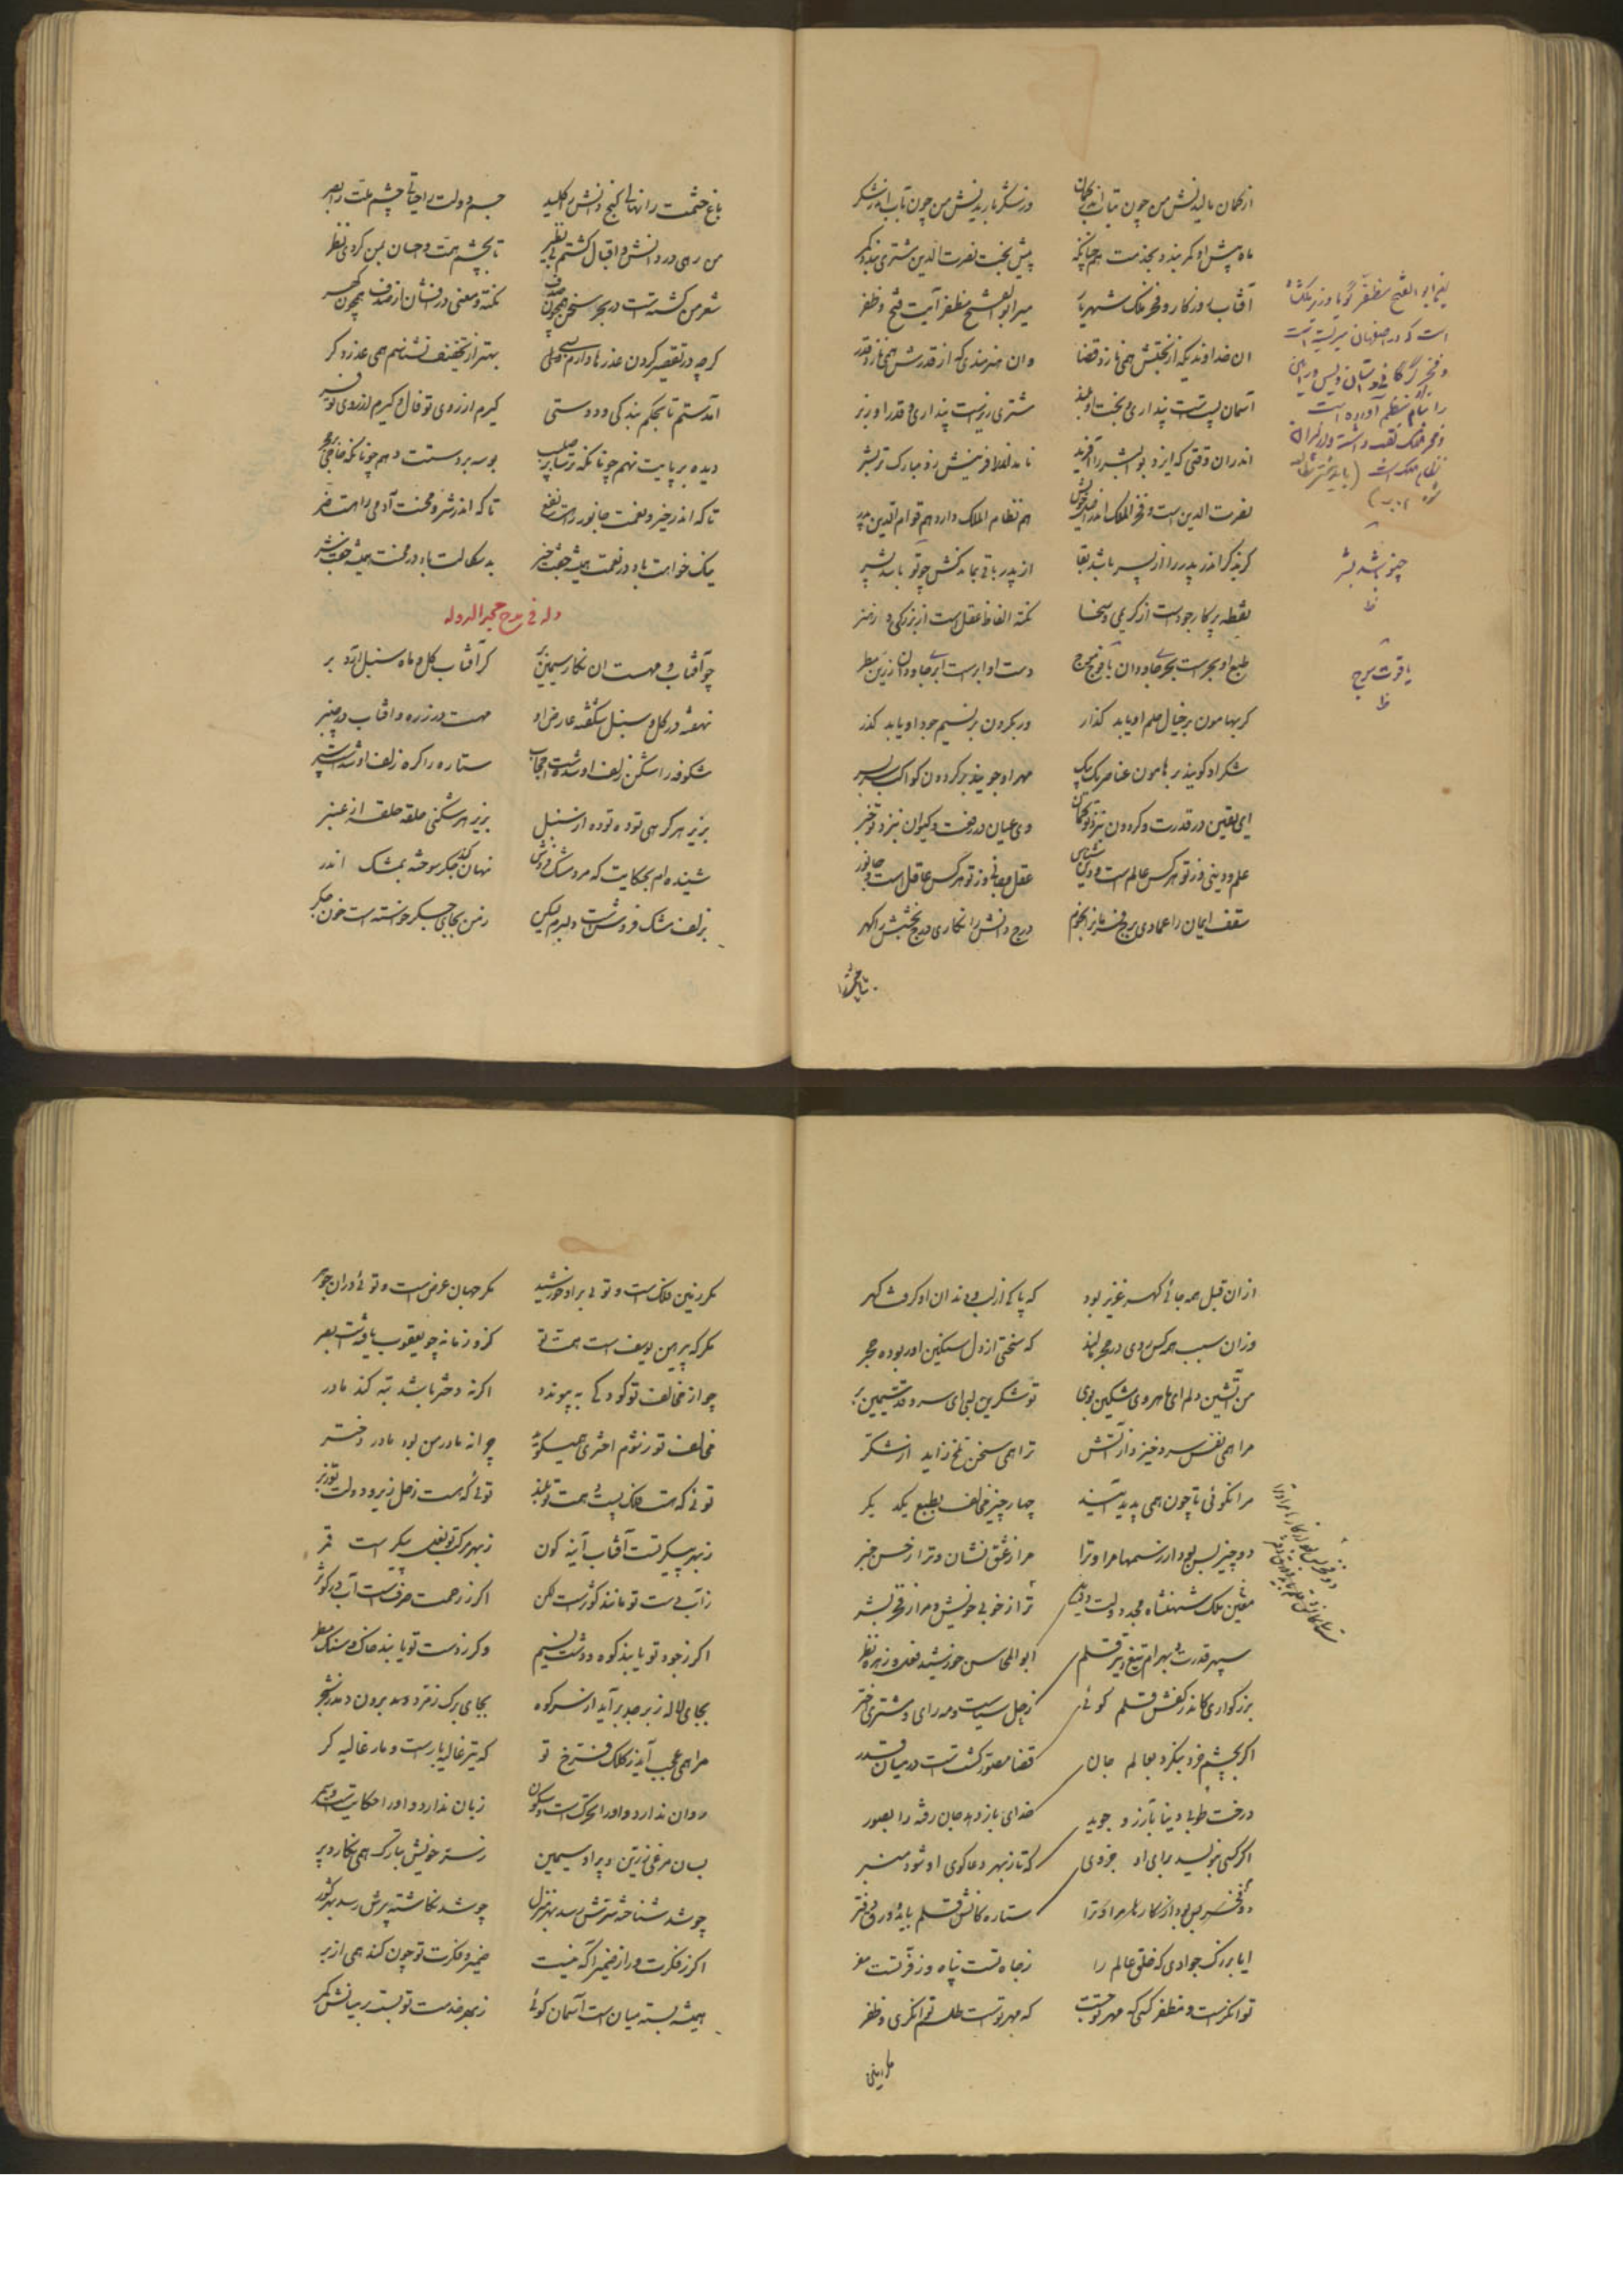 از کمان بالیدنش من چون بتاب اندر کمان
وز شکر باریدنش من چون تاب اندر شکر
ماه پیش او کمر بندد بخدمت همچنانکه
پیش بخت نصرت الدین مشتری بندد کمر
آفتاب روزکار و فخر ملک شهریار
میر ابوالفتح مظفر آیت فتح و ظفر
ان خداوندیکه از بختش همی نازد قضا
وان هنرمندی که از قدرش همی نازد قدر
آسمان پستست پنداری و بخت او بلند
مشتری زیرست پنداری و قدر او زبر
اندران وقتی که ایزد بوالبشر را آفرید
نامد اندر افرینش زو مبارک تر بشر
نصرت الدین است و فخر الملک اندر
هم نظام الملک دارد هم قوام الدین پدر
کر پدر را از پسر باشد بقا
از پدر باقی بماند کش چو تو باشد پسر
نقطه پرکار جودست از کریمی و سخا
نکته الفاظ عقل است از بزرکی و هنر
طبع او بحرست بحری جاودان با موج
دست او ابرست ابری جاودان زرین مطر
کر بهامون بر خیال حلم او یابد کذار
ور بکردون بر نسیم جود او یابد کذر
شکر او کویند بر هامون عناصر یک بیک
مهر او جویند بر کردون کواکب سربسر
ای یقین در قدرت و کردون بنزد تو کمان
وی عیان در رفعت و کیوان بنزد تو خبر
علم و دینی وز تو هرکس عالم است و دین شناس
عقل و جانی وز تو هرکس عاقل است و جانور
سقف ایمان را عمادی برج فخر را نجوم
درج دانش را نکاری درج بخشش را کهر
یعنی ابو الفتح مظفر گویا وزیر ملکشاه
است که در اصفهان میزیسته است
و فخر گرگانی داستان ویس و رامین
را بنام او بنظم آورده است
و فخر الملک لقب داشته
نظام الملک است
چو تو باشد بشر
ظ
یاقوت موج
ظ
باغ حشمت را نهالی کنج دانش را کلید
جسم دولت را حیاتی چشم ملت را بصر
من رهی در دانش و اقبال کشتم بی نظیر
تا بچشم همت و احسان بمن کردی نظر
شعر من کشته است در بحر سخن همچون صدف
نکته و معنی درفشان از صدف همچون کهر
کرچه در تقصیر کردن عذرها دارم بسی
بهتر از تخفیف نشناسم همی عذر دکر
آمدستم تا بحکم بندکی و دوستی
کیرم از روی تو فال و کیرم از روی تو فر
دیده بر پایت نهم چونانکه ترسا بر صلیب
بوسه بر دستت دهم چونانکه حاجی بر حجر
تا که اندر خیر و نعمت جانور راهست نفع
تا که اندر شر و محنت آدمی راهست ضر
نیک خواهت باد در نعمت همیشه جفت خیر
بدسکالت باد در محنت همیشه جفت شر
وله فی مدح مجیر الدوله
چو آفتاب و مهست ان نکار سیمین بر
کر آفتاب کل و ماه سنبل آرد بر
نهفته در کل و سنبل شکفته عارض او
مهست در زره و افتاب در چنبر
شکوفه را شکن زلف او شدست حجاب
ستاره را کره زلف او شدست سپر
بزیر هر کرهی توده توده از سنبل
بزیر هر شکنی حلقه حلقه از عنبر
شنیده ام بحکایت که مرد مشک فروش
نهان کند جکر سوخته بمشک اندر
بزلف مشک فروش است دلبرم لیکن
ز من بجای جکر خواسته است خون جکر
ازان قبل همه جائی کهر عزیز بود
که پاکی از لب و دندان او کرفت کهر
وزان سبب همه کس روی در حجر مالند
که سختی از دل سنکین او ربوده حجر
من آتشین دلم ای ماهروی مشکین موی
تو شکرین لبی ای سرو قد سیمین بر
مرا همی نفس سرد خیزد از آتش
ترا همی سخن تلخ زاید از شکر
مرا نکوئی تا چون همی پدید آیند
چهار چیز مخالف بطبع یکدیکر
دو چیز بس بود از رسمها مرا و ترا
مرا ز عشق نشان و ترا ز حسن خبر
معین ملک شهنشاه مجد دولت و دین
ترا ز خوبی خویش و مرا ز فخر بشر
سپهر قدرت و بهرام تیغ و تیر قلم
ابو المحاسن خورشید فعل و زهره نظر
بزرکواری کاندر کفش قلم کوئی
زحل سیاست و مه رای و مشتری اختر
اکر بچشم خرد بنکرد بعالم جان
قضا مصور کشته است در میان قدر
درخت طوبی و مینا بآرزو جوید
خدای باز دهد جان رفته را بصور
اکر کسی بنویسد برای او جزوی
که تا ز بهر دعاکوی او شود منبر
دو فخر بس بود از کارها مرا و ترا
ستاره کانش قلم باید و ورق دفتر
ایا بزرک جوادی که خلق عالم را
ز جاه تست پناه و ز فر تست مفر
توانکرست و مظفر کسی که مهر تو جست
که مهر تست طلسم توانکری و ظفر
مکر زمین فلک است و توئی بر او خورشید
مکر جهان عرض است و توئی دران جوهر
مکر که پیرهن یوسف است همت تو
کزو زمانه چو یعقوب یافته است بصر
چو از مخالف تو کودکی به پیوندد
اکرنه دختر باشد تبه کند مادر
مخالف تو ز شوم اختری همیکوید
چرا نه مادر من بود مادر دختر
توئی که هست فلک پست و همت تو بلند
توئی که هست زحل زیر و دولت تو زبر
ز بهر پیکر تست آفتاب آینه کون
ز بهر مرکب تو نعل پیکر است قمر
ز آب دست تو مانند کوثرست لکن
اکر ز رحمت صرفست آب در کوثر
اکر ز جود تو یابند کوه و دشت نسیم
وکر ز دست تو یابند خاک و سنک مطر
بجای لاله زبرجد برآید از سر کوه
بجای برک زمرد دمد برون ز شجر
مرا همی عجب آید ز کلک فرخ تو
که تیر غالیه بارست و مار غالیه کر
روان ندارد و او را تحرک است و سکون
زبان ندارد و او را حکایتست و سمر
بسان مرغی زرین و پر او سیمین
ز ستر خویش بتارک همی نکارد پر
چو شد شناخته سرش رسد بهر منزل
چو شد نکاشته پرش رسد بهر کشور
اکر ز فکرت و راز ضمیر آکه نیست
ضمیر و فکرت تو چون کند همی از بر
همیشه بسته میان است آسمان کوئی
ز بهر خدمت تو بست بر میانش کمر